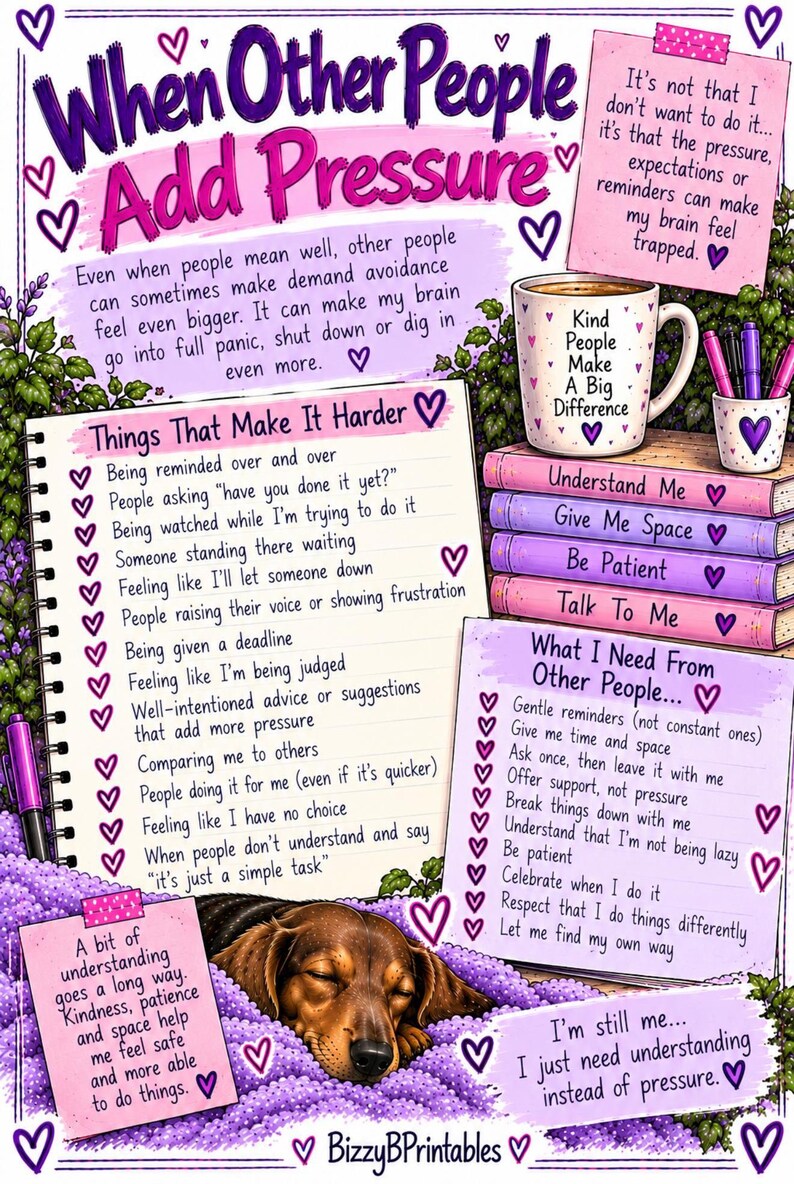 When Other People
Add Pressure
It's not that I
don't want to do it...
it's that the pressure,
expectations or
reminders can make
my brain feel
trapped.
Even when people mean well, other people
can sometimes make demand avoidance
feel even bigger. It can make my brain
go into full panic, shut down or dig in
even more.
Kind
People
Make
A Big
Difference
Understand Me
Give Me Space
Be Patient
Talk To Me
Things That Make It Harder
Being reminded over and over
People asking "have you done it yet?"
Being watched while I'm trying to do it
Someone standing there waiting
Feeling like I'll let someone down
People raising their voice or showing frustration
Being given a deadline
Feeling like I'm being judged
Well-intentioned advice or suggestions
that add more pressure
Comparing me to others
People doing it for me (even if it's quicker)
Feeling like I have no choice
When people don't understand and say
"it's just a simple task"
What I Need From
Other People...
Gentle reminders (not constant ones)
Give me time and space
Ask once, then leave it with me
Offer support, not pressure
Break things down with me
Understand that I'm not being lazy
Be patient
Celebrate when I do it
Respect that I do things differently
Let me find my own way
A bit of
understanding
goes a long way.
Kindness, patience
and space help
me feel safe
and more able
to do things.
I'm still me...
I just need understanding
instead of pressure.
BizzyBPrintables